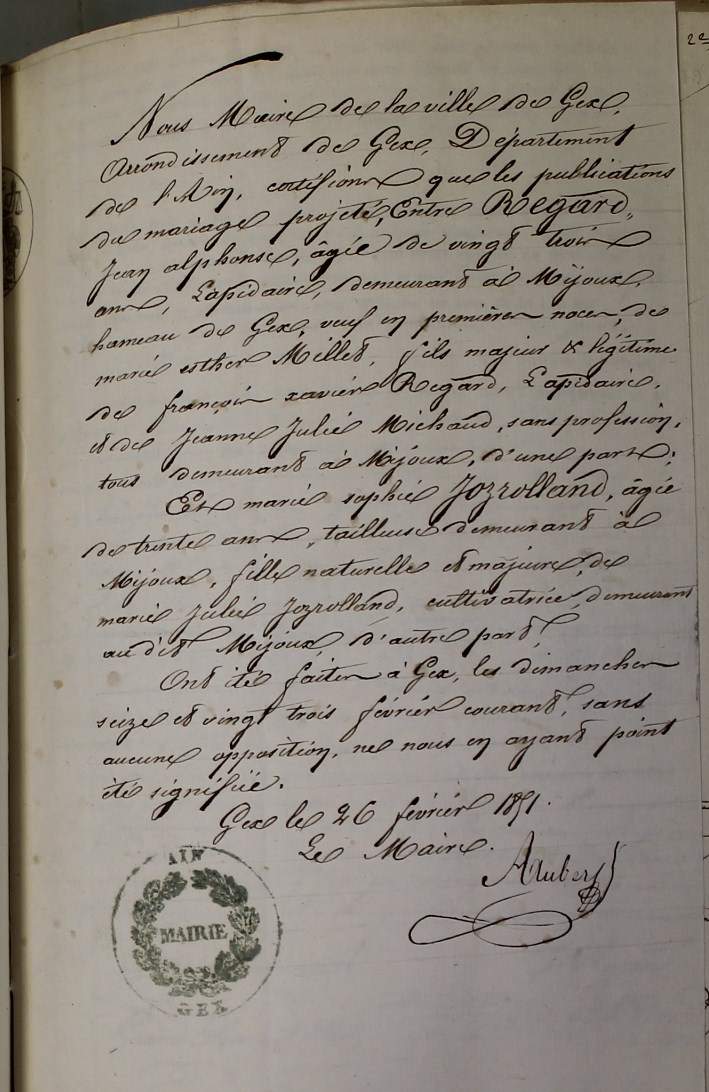 2e
Nous Maire de la ville de Gex,
Arrondissement de Gex, Département
de l'Ain, certifions que les publications
du mariage projeté, Entre Regard,
Jean alphonse, âgé de vingt trois
ans, Lapidaire, demeurant à Mijoux,
hameau de Gex, veuf en premières noces, de
marie esther Millet, fils majeur & légitime
de françois xavier Regard, Lapidaire,
et de Jeanne Julie Michaud, sans profession,
tous demeurant à Mijoux, d'une part;
Et marie sophie Jozrolland, âgée
de trente ans, tailleuse demeurant à
Mijoux, fille naturelle et majeure, de
marie Julie Jozrolland, cultivatrice, demeurant
au dit Mijoux, d'autre part,
Ont été faites à Gex, les dimanches
seize et vingt trois février courant, sans
aucune opposition, ne nous en ayant point
été signifiée.
Gex le 26 février 1851.
Le Maire.
AIN
MAIRIE
GEX